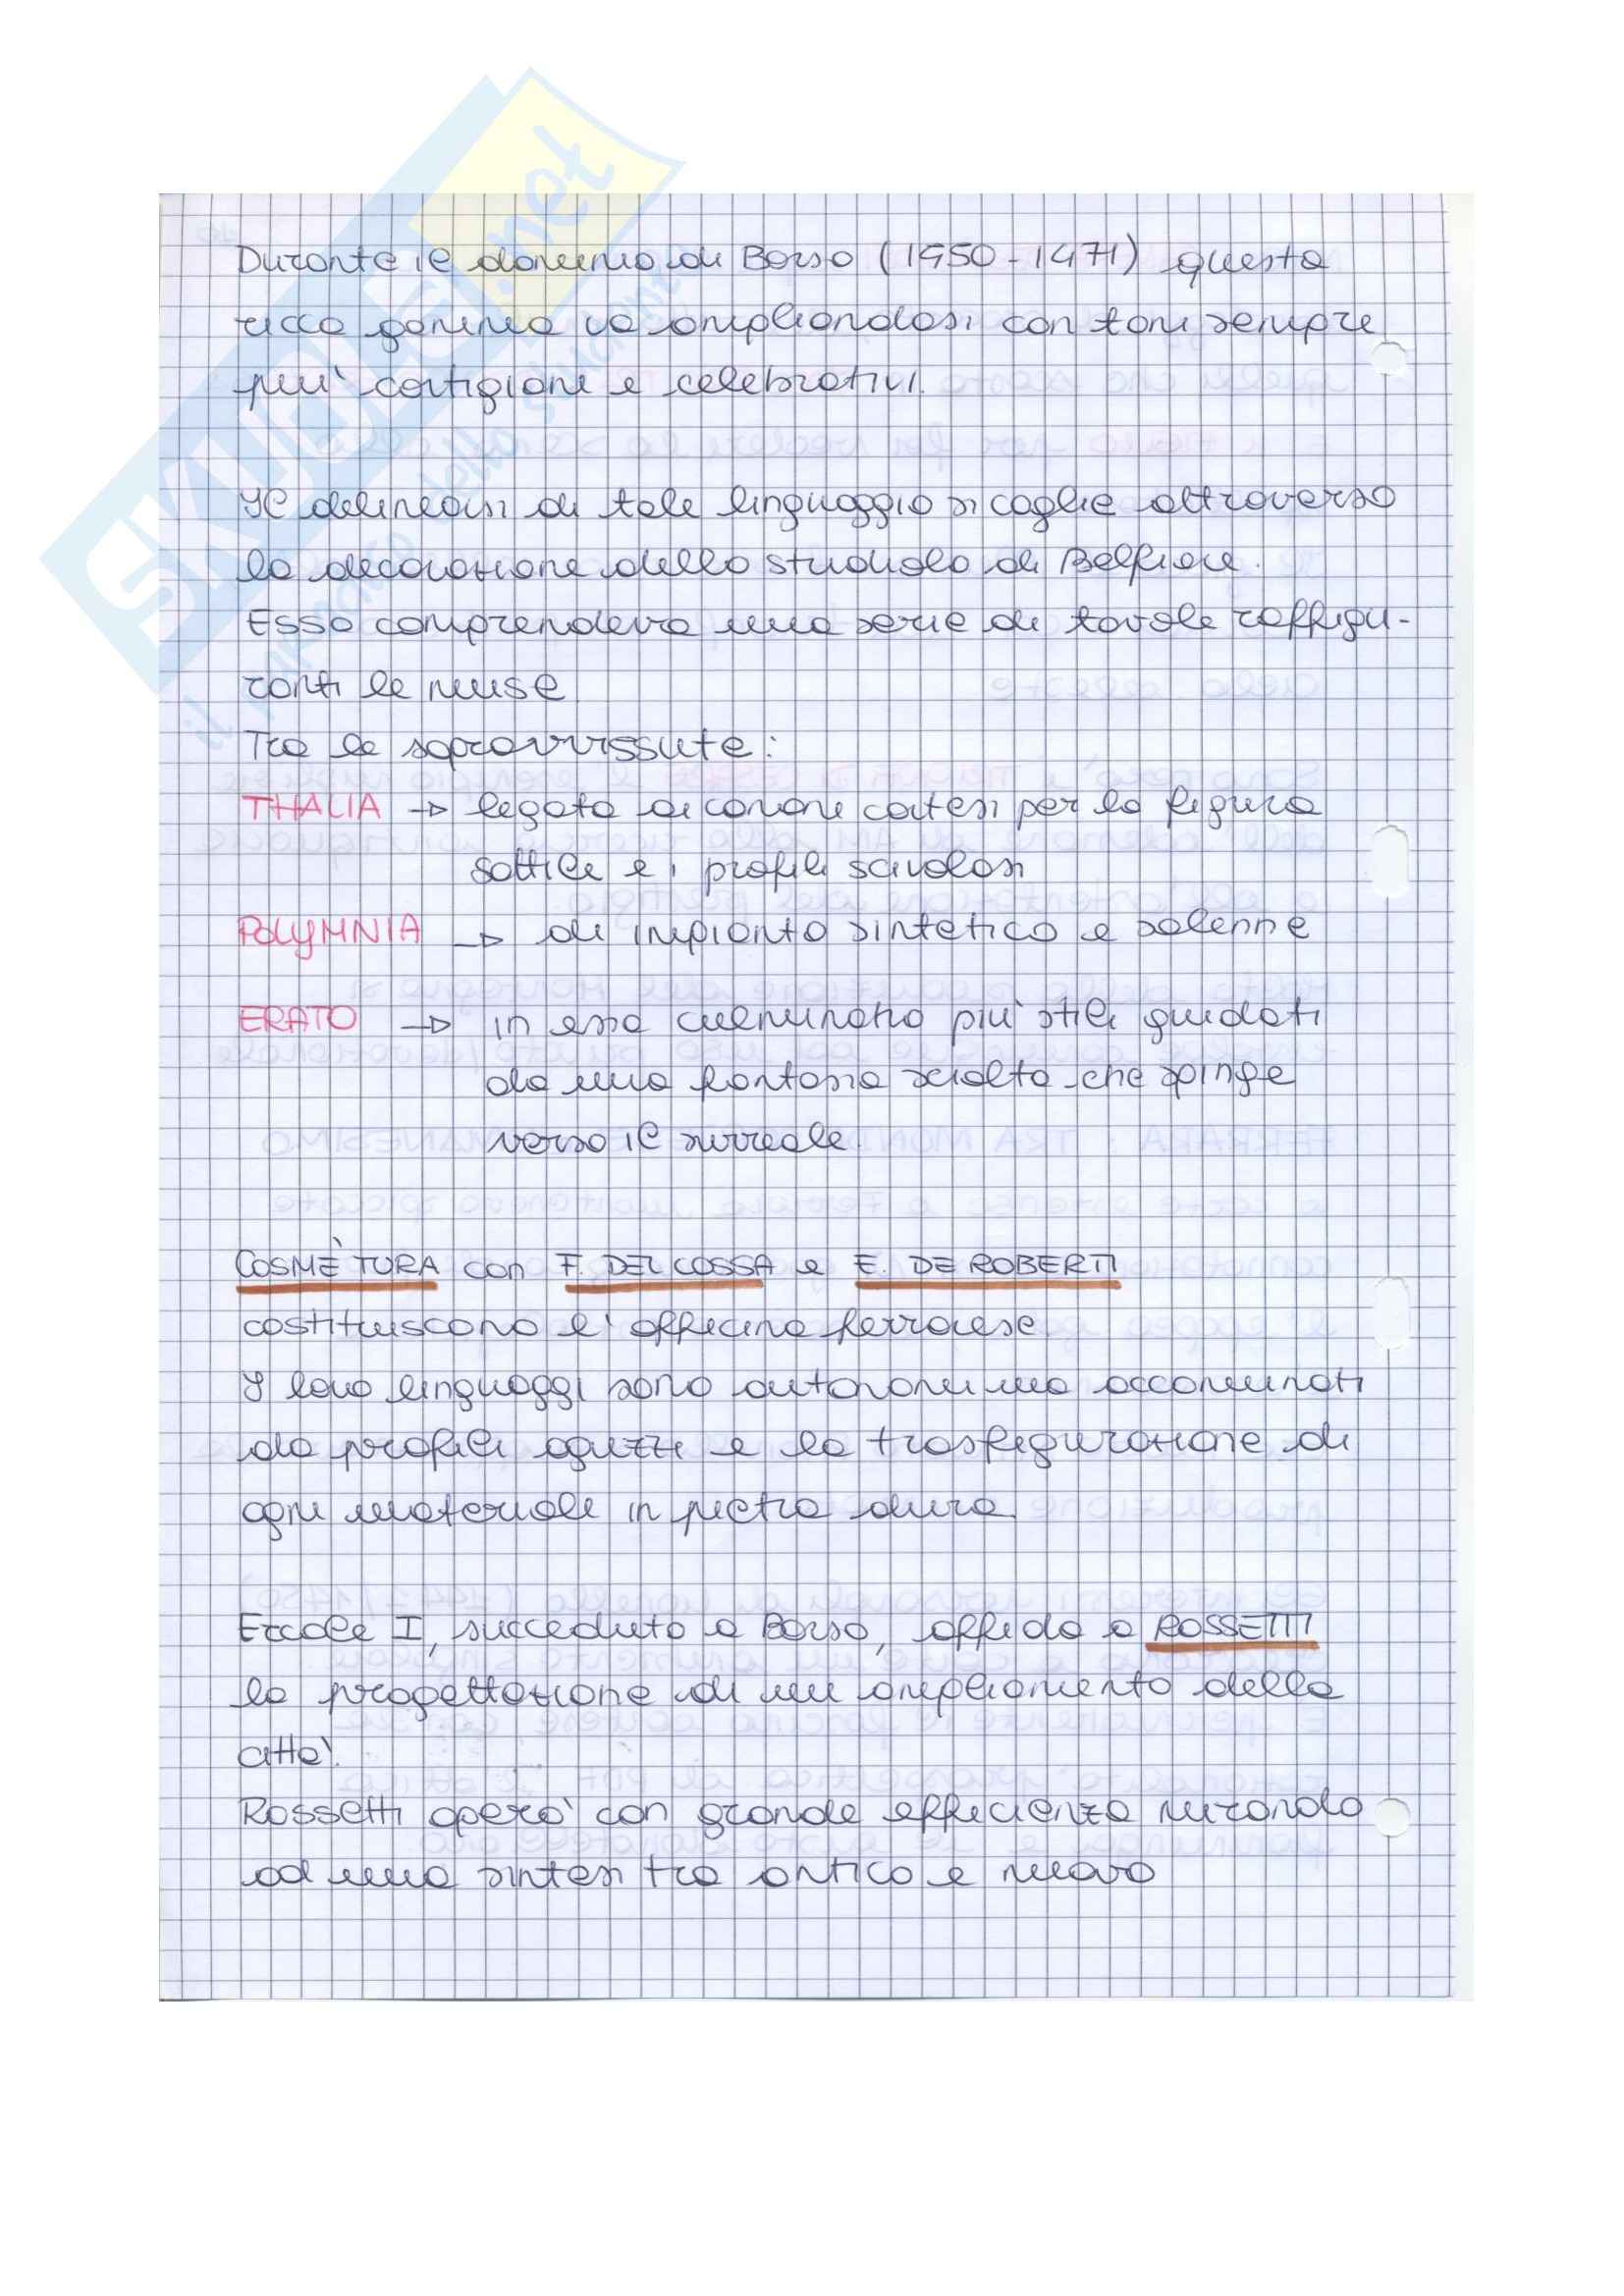 SKUOLA.net
il paradiso dello studente
Durante il dominio di Borso (1450-1471) questa
ricca gamma va ampliandosi con toni sempre
più cortigiani e celebrativi.
Il delinearsi di tale linguaggio si coglie attraverso
la decorazione dello studiolo di Belfiore.
Esso comprendeva una serie di tavole raffigu-
ranti le muse
Tra le sopravvissute:
THALIA → legata ai canoni cortesi per la figura
sottile e i profili scivolosi
POLYMNIA → di impianto sintetico e solenne
ERATO → in essa culminano più stili guidati
da una fantasia sciolta che spinge
verso il surreale.
COSMÈ TURA con F. DEL COSSA e E. DE ROBERTI
costituiscono l'officina ferrarese
I loro linguaggi sono autonomi ma accomunati
da profili aguzzi e la trasfigurazione di
ogni materiale in pietra dura.
Ercole I, succeduto a Borso, affida a ROSSETTI
la progettazione di un ampliamento della
città.
Rossetti operò con grande efficienza mirando
ad una sintesi tra antico e nuovo